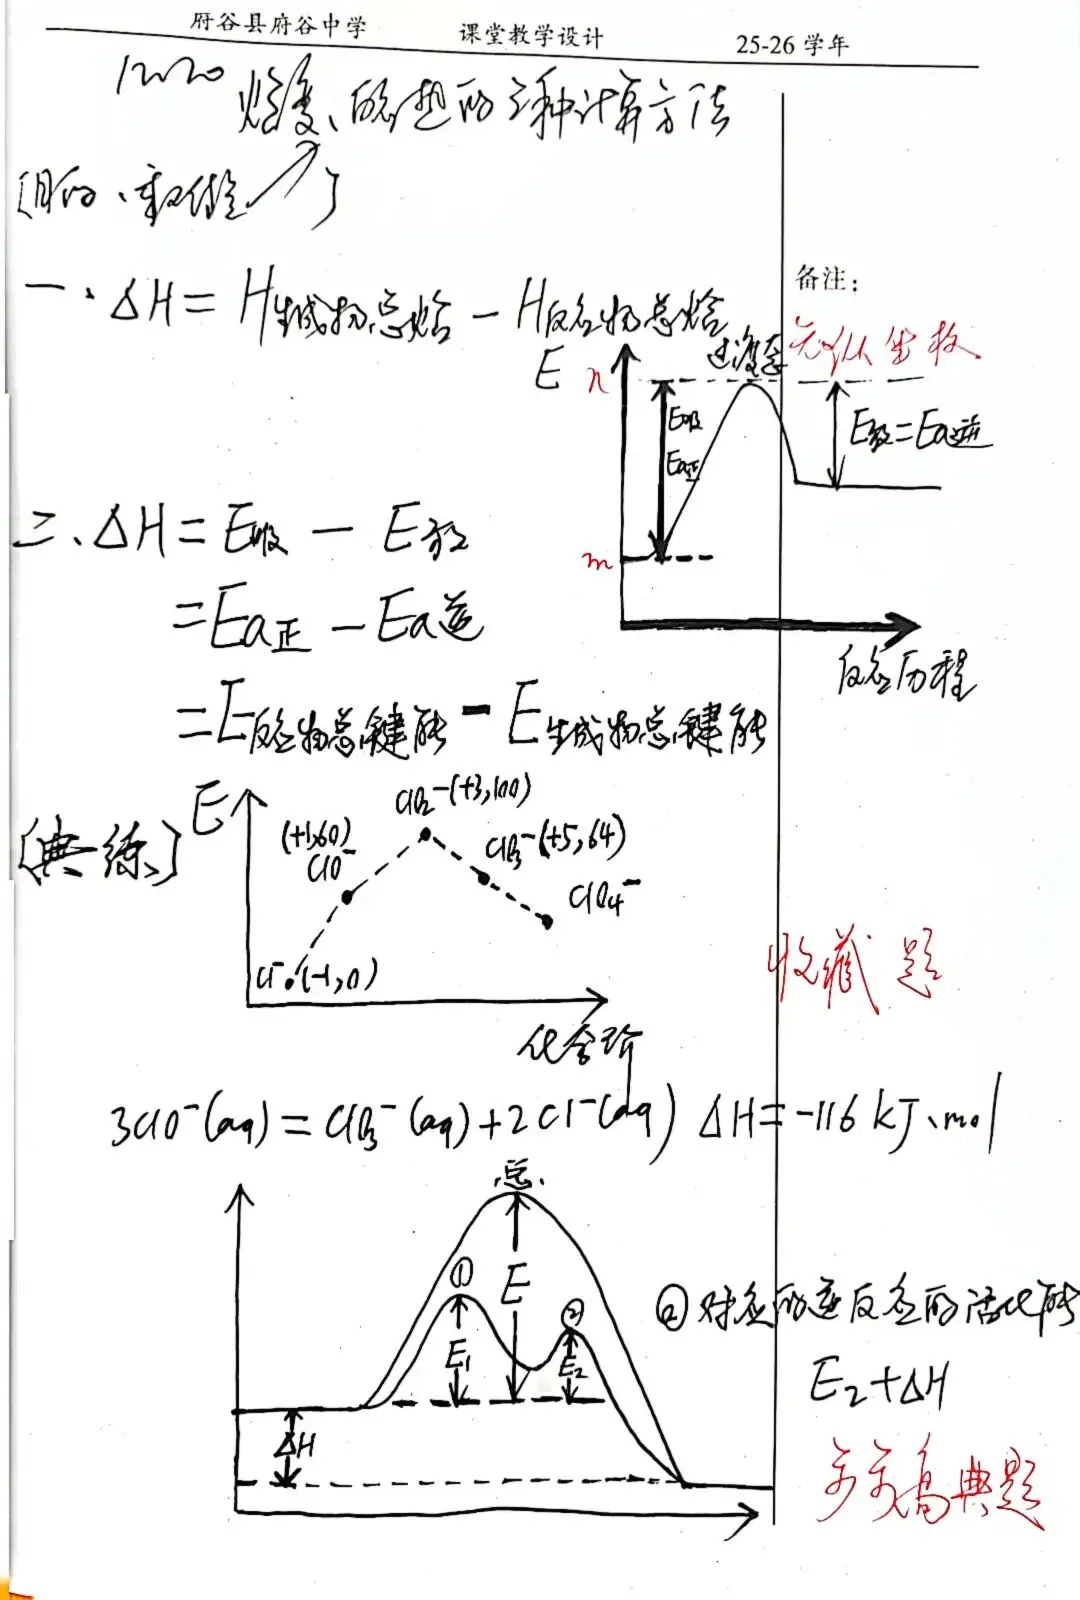 府谷县府谷中学 课堂教学设计 25-26 学年
焓变、的三种计算方法
一、ΔH = H生成物总焓 - H反应物总焓
备注:
E n 过渡态
E吸
Ea正
E放=Ea逆
m
反应历程
二、ΔH = E吸 - E放
= Ea正 - Ea逆
= E反应物总键能 - E生成物总键能
[典练]
E
ClO2⁻(+3,100)
(+1,60)
ClO⁻
ClO3⁻(+5,64)
ClO4⁻
Cl⁻(-1,0)
化合价
收藏题
3ClO⁻(aq) = ClO3⁻(aq) + 2Cl⁻(aq) ΔH = -116 kJ、mol
总
① E ②
E1 E2
ΔH
②对应的逆反应的活化能
E2+ΔH
典题